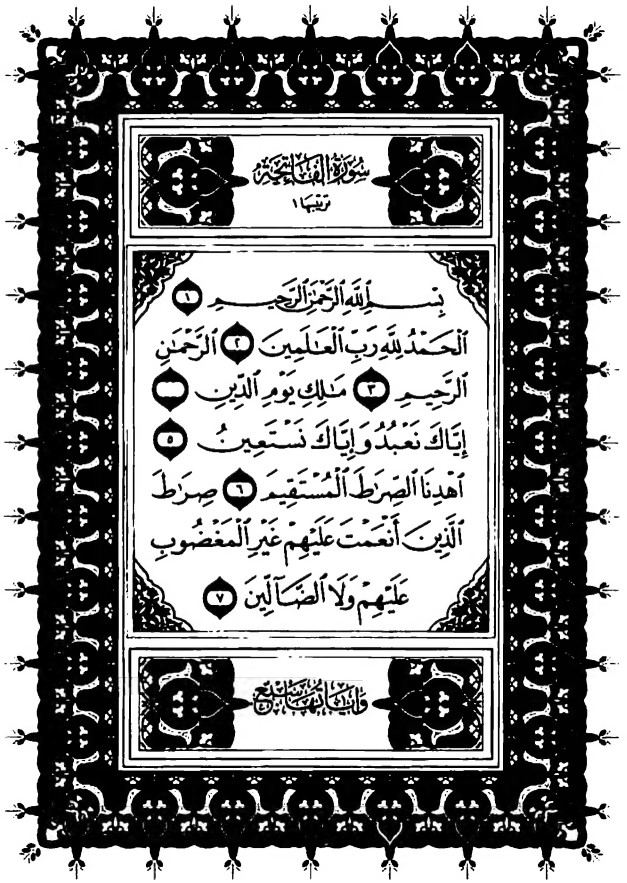 سُورَةُ الْفَاتِحَةِ
ترتيبها ١
بِسْمِ ٱللَّهِ ٱلرَّحْمَٰنِ ٱلرَّحِيمِ ١
ٱلْحَمْدُ لِلَّهِ رَبِّ ٱلْعَٰلَمِينَ ٢ ٱلرَّحْمَٰنِ
ٱلرَّحِيمِ ٣ مَٰلِكِ يَوْمِ ٱلدِّينِ
إِيَّاكَ نَعْبُدُ وَإِيَّاكَ نَسْتَعِينُ ٥
ٱهْدِنَا ٱلصِّرَٰطَ ٱلْمُسْتَقِيمَ ٦ صِرَٰطَ
ٱلَّذِينَ أَنْعَمْتَ عَلَيْهِمْ غَيْرِ ٱلْمَغْضُوبِ
عَلَيْهِمْ وَلَا ٱلضَّآلِّينَ ٧
وَآيَاتُهَا سَبْعٌ